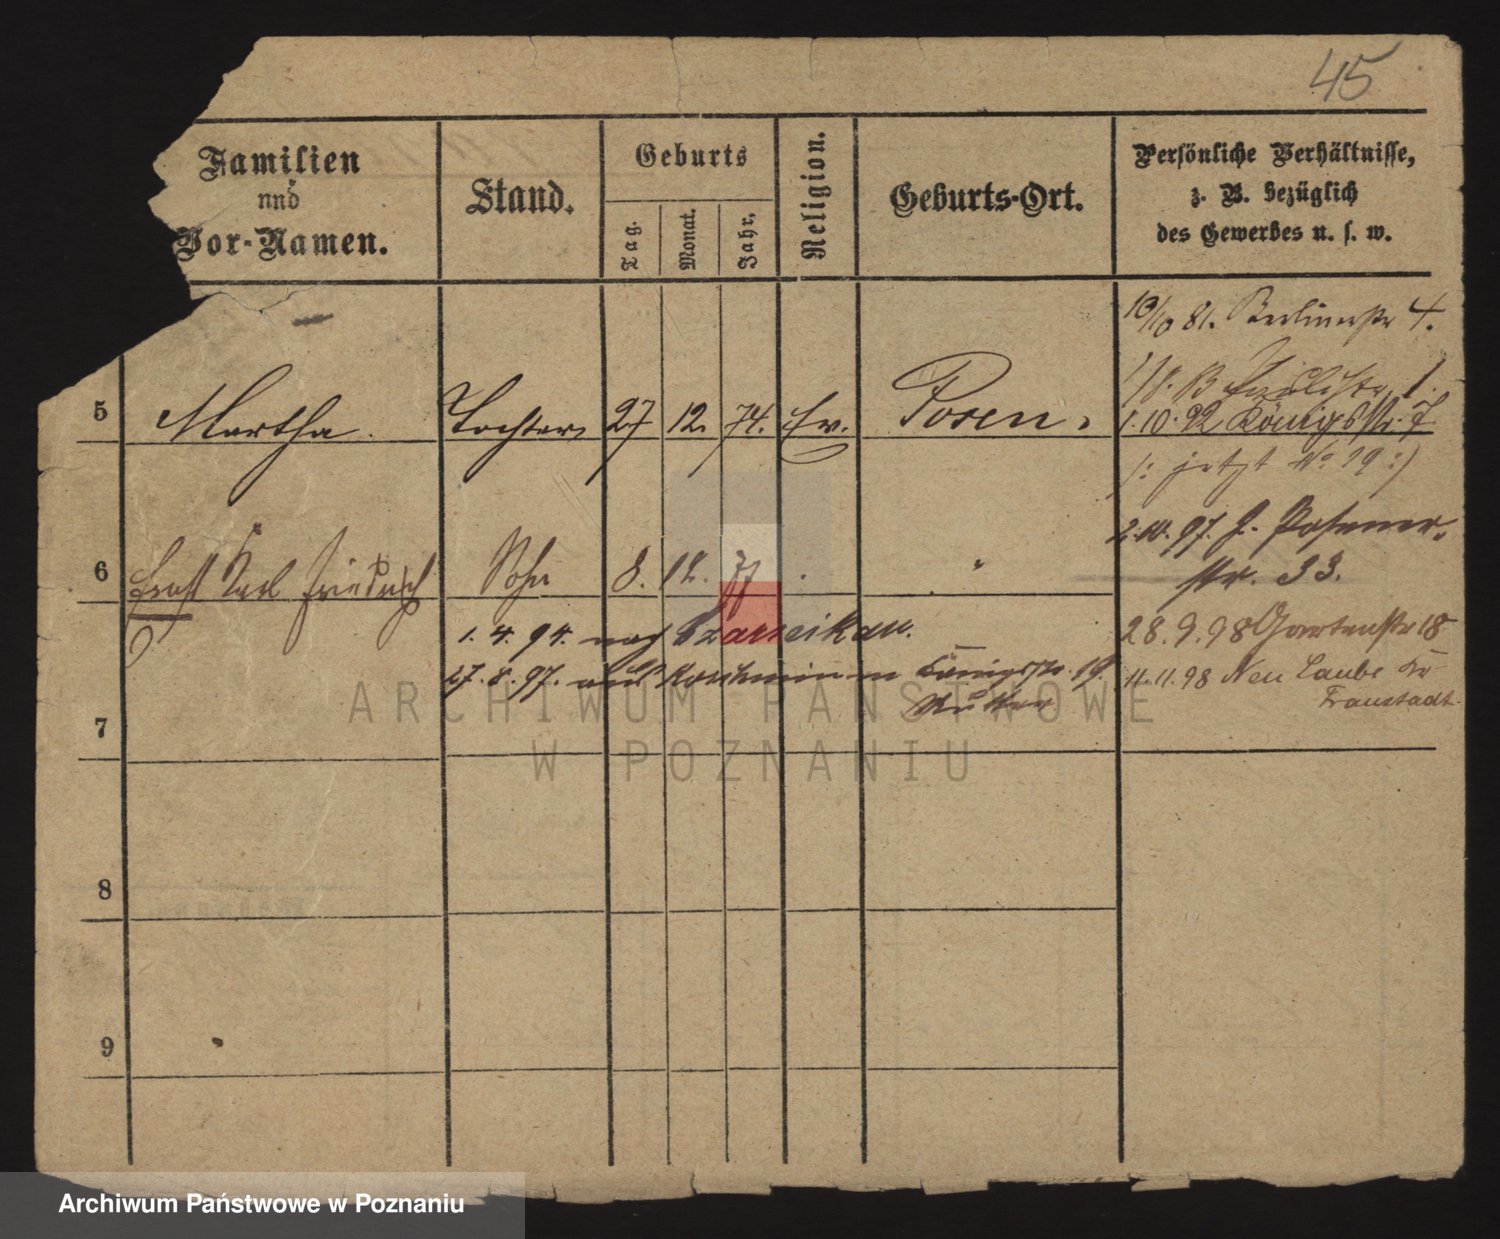 45
Familien
und
Vor-Namen.
Stand.
Geburts
Tag.
Monat.
Jahr.
Religion.
Geburts-Ort.
Persönliche Verhältnisse,
z. B. bezüglich
des Gewerbes u. s. w.
13/10 81. Berlinerstr 4.
5 Martha. Tochter 27 12. 74. Ev. Posen.
1.10.92 Königsstr. 7.
(: jetzt No 19 :)
2.10.97. J. Posener-
str. 33.
6 Ernst Karl Friedrich Sohn 8. 12. 77 . "
1. 4. 94. nach Czarneikau.
28.9.98 Gartenstr 18
27. 8. 97. aus Koschmin Königsstr. 19.
Mutter
11.11.98 Neu Laube Kr
Fraustadt.
7
8
9
ARCHIWUM PAŃSTWOWE
W POZNANIU
Archiwum Państwowe w Poznaniu